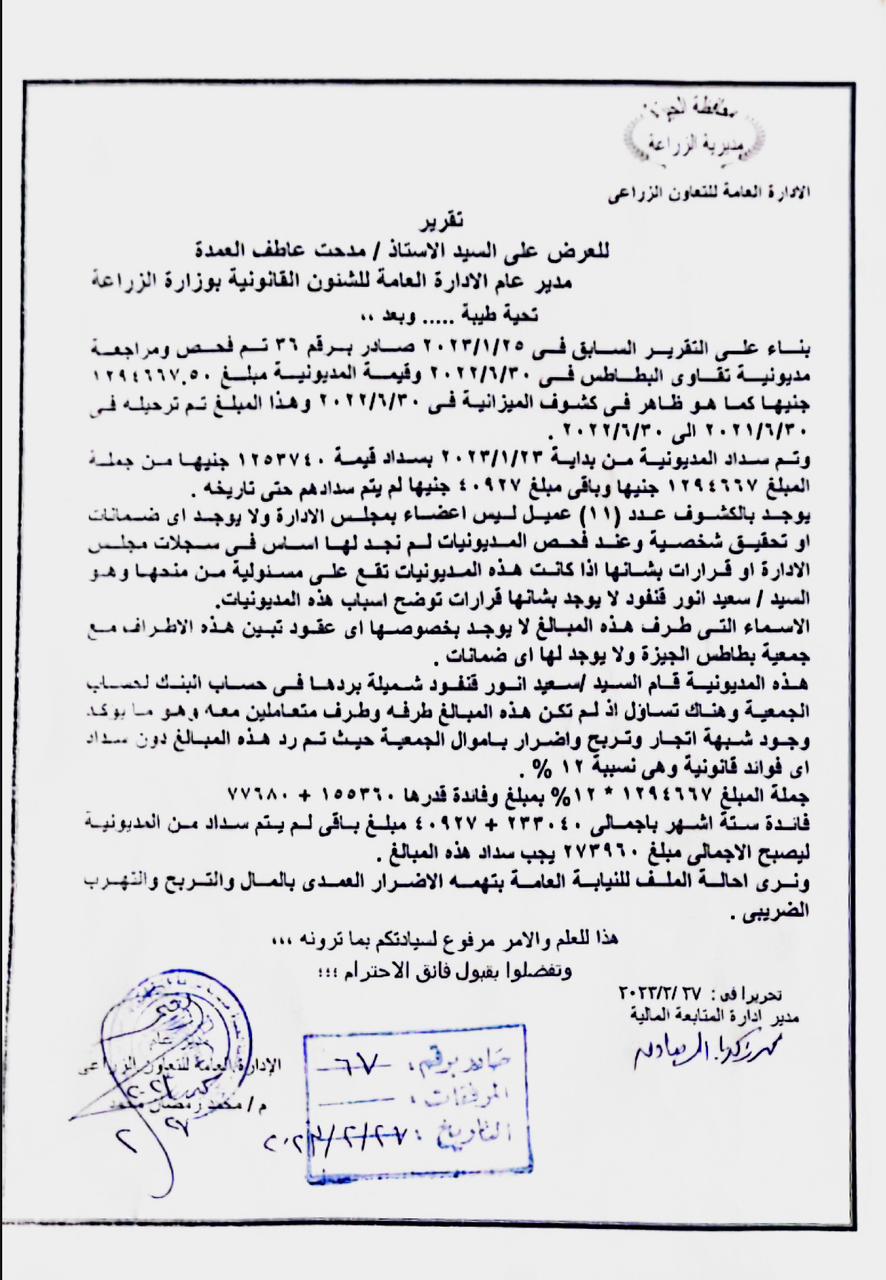 محافظة الجيزة
مديرية الزراعة
الادارة العامة للتعاون الزراعى
تقرير
للعرض على السيد الاستاذ / مدحت عاطف العمدة
مدير عام الادارة العامة للشئون القانونية بوزارة الزراعة
تحية طيبة ..... وبعد ،،
بناء على التقرير السابق فى ٢٠٢٣/١/٢٥ صادر برقم ٣٦ تم فحص ومراجعة
مديونية تقاوى البطاطس فى ٢٠٢٢/٦/٣٠ وقيمة المديونية مبلغ ١٢٩٤٦٦٧.٥٠
جنيها كما هو ظاهر فى كشوف الميزانية فى ٢٠٢٢/٦/٣٠ وهذا المبلغ تم ترحيله فى
٢٠٢١/٦/٣٠ الى ٢٠٢٢/٦/٣٠ .
وتم سداد المديونية من بداية ٢٠٢٣/١/٢٣ بسداد قيمة ١٢٥٣٧٤٠ جنيها من جملة
المبلغ ١٢٩٤٦٦٧ جنيها وباقى مبلغ ٤٠٩٢٧ جنيها لم يتم سدادهم حتى تاريخه .
يوجد بالكشوف عدد (١١) عميل ليس اعضاء بمجلس الادارة ولا يوجد اى ضمانات
او تحقيق شخصية وعند فحص المديونيات لم نجد لها اساس فى سجلات مجلس
الادارة او قرارات بشانها اذا كانت هذه المديونيات تقع على مسئولية من منحها وهو
السيد / سعيد انور قنفود لا يوجد بشانها قرارات توضح اسباب هذه المديونيات.
الاسماء التى طرف هذه المبالغ لا يوجد بخصوصها اى عقود تبين هذه الاطراف مع
جمعية بطاطس الجيزة ولا يوجد لها اى ضمانات .
هذه المديونية قام السيد /سعيد انور قنفود شميلة بردها فى حساب البنك لحساب
الجمعية وهناك تساؤل اذ لم تكن هذه المبالغ طرفه وطرف متعاملين معه وهو ما يوكد
وجود شبهة اتجار وتربح واضرار باموال الجمعية حيث تم رد هذه المبالغ دون سداد
اى فوائد قانونية وهى نسبية ١٢ % .
جملة المبلغ ١٢٩٤٦٦٧ * ١٢% بمبلغ وفائدة قدرها ١٥٥٣٦٠ + ٧٧٦٨٠
فائدة ستة اشهر باجمالى ٢٣٣٠٤٠ + ٤٠٩٢٧ مبلغ باقى لم يتم سداد من المديونية
ليصبح الاجمالى مبلغ ٢٧٣٩٦٠ يجب سداد هذه المبالغ .
ونرى احالة الملف للنيابة العامة بتهمه الاضرار العمدى بالمال والتربح والتهرب
الضريبى .
هذا للعلم والامر مرفوع لسيادتكم بما ترونه ،،،
وتفضلوا بقبول فائق الاحترام ؛؛؛
تحريرا فى : ٢٠٢٣/٢/٢٧
مدير ادارة المتابعة المالية
مدير عام
الإدارة العامة للتعاون الزراعى
م / محمد رمضان محمد
٢٧
٢
صادر برقم : ٦٧
المرفقات :
التاريخ : ٢٠٢٣/٢/٢٧